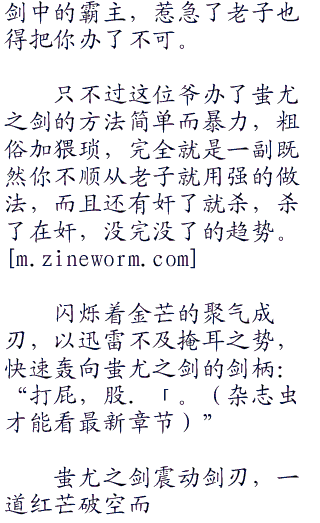 剑中的霸主，惹急了老子也
得把你办了不可。
只不过这位爷办了蚩尤
之剑的方法简单而暴力，粗
俗加猥琐，完全就是一副既
然你不顺从老子就用强的做
法，而且还有奸了就杀，杀
了在奸，没完没了的趋势。
[m.zineworm.com]
闪烁着金芒的聚气成
刃，以迅雷不及掩耳之势，
快速轰向蚩尤之剑的剑柄：
“打屁，股．「。（杂志虫
才能看最新章节）”
蚩尤之剑震动剑刃，一
道红芒破空而